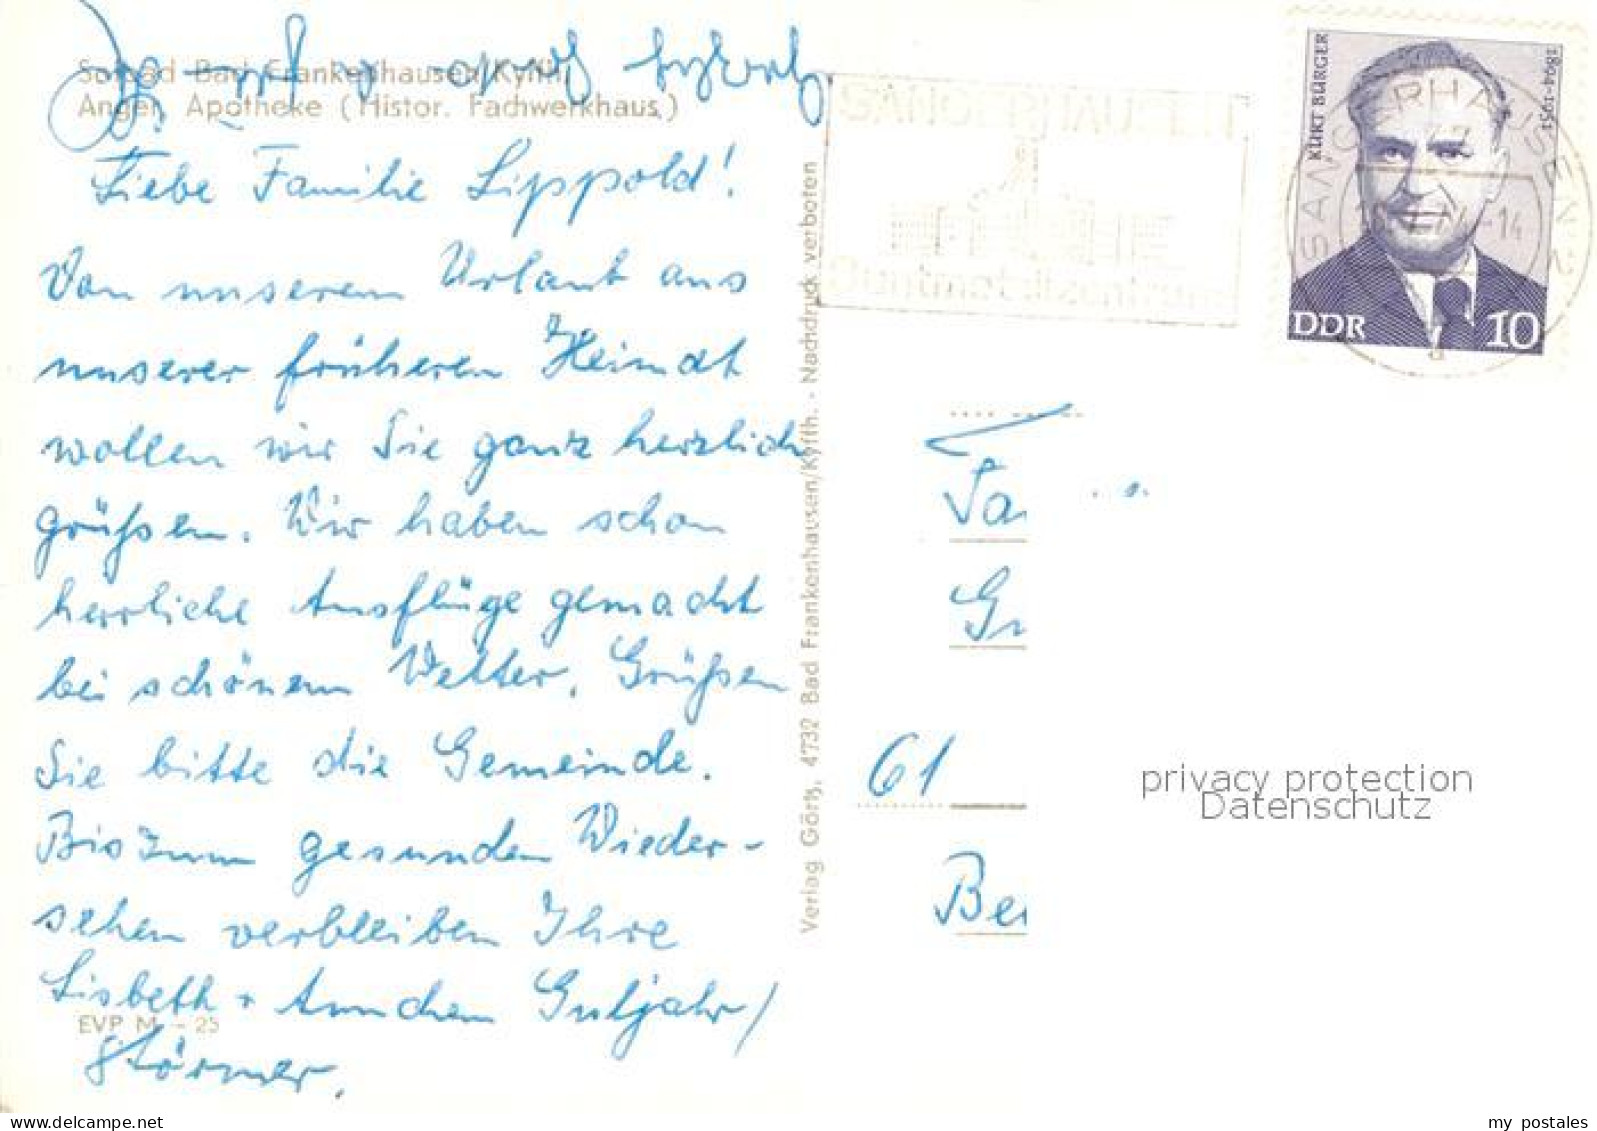 Solbad Bad Frankenhausen/Kyffh.
Anger Apotheke (Histor. Fachwerkhaus)
Liebe Familie Lippold!
Von unserem Urlaub aus
unserer früheren Heimat
wollen wir Sie ganz herzlich
grüßen. Wir haben schon
herrliche Ausflüge gemacht
bei schönem Wetter. Grüßen
Sie bitte die Gemeinde.
Bis zum gesunden Wieder-
sehen verbleiben Ihre
Lisbeth + Annchen Gutjahr /
Störmer.
EVP M - 25
Verlag Göritz, 4732 Bad Frankenhausen/Kyffh. - Nachdruck verboten
KURT BÜRGER
1894-1951
DDR 10
SANGERHAUSEN 2
47
-14
a
Fa
Gr
61
Ber
privacy protection
Datenschutz
www.delcampe.net
my_postales